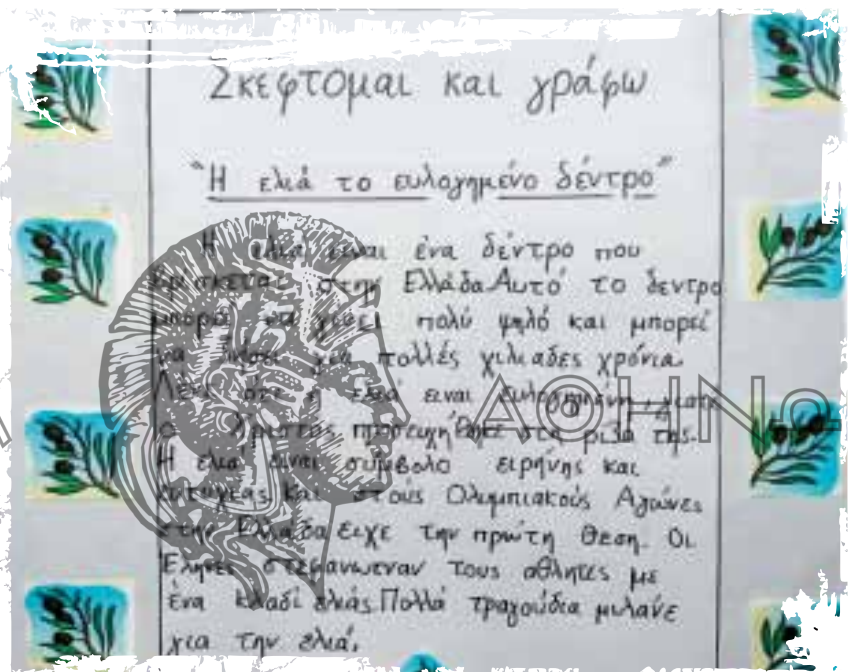 Σκεφτομαι και γράφω
"Η ελιά το ευλογημένο δέντρο"
Η ελιά ειναι ένα δέντρο που
στην Ελλάδα. Αυτό το δεντρο
μπορεί να πολύ ψηλό και μπορεί
να για πολλές χιλιαδες χρόνια.
ότι η ελιά ειναι ευλογημένη, γιατι
ο Χριστός στη ρίζα της.
Η ελιά ειναι σύμβολο ειρήνης και
και στους Ολυμπιακούς Αγώνες
στην Ελλάδα ειχε την πρώτη θεση. Οι
τους αθλητες με
ένα κλαδί ελιάς. Πολλά τραγούδια μιλάνε
για την ελιά.
ΑΘΗΝ